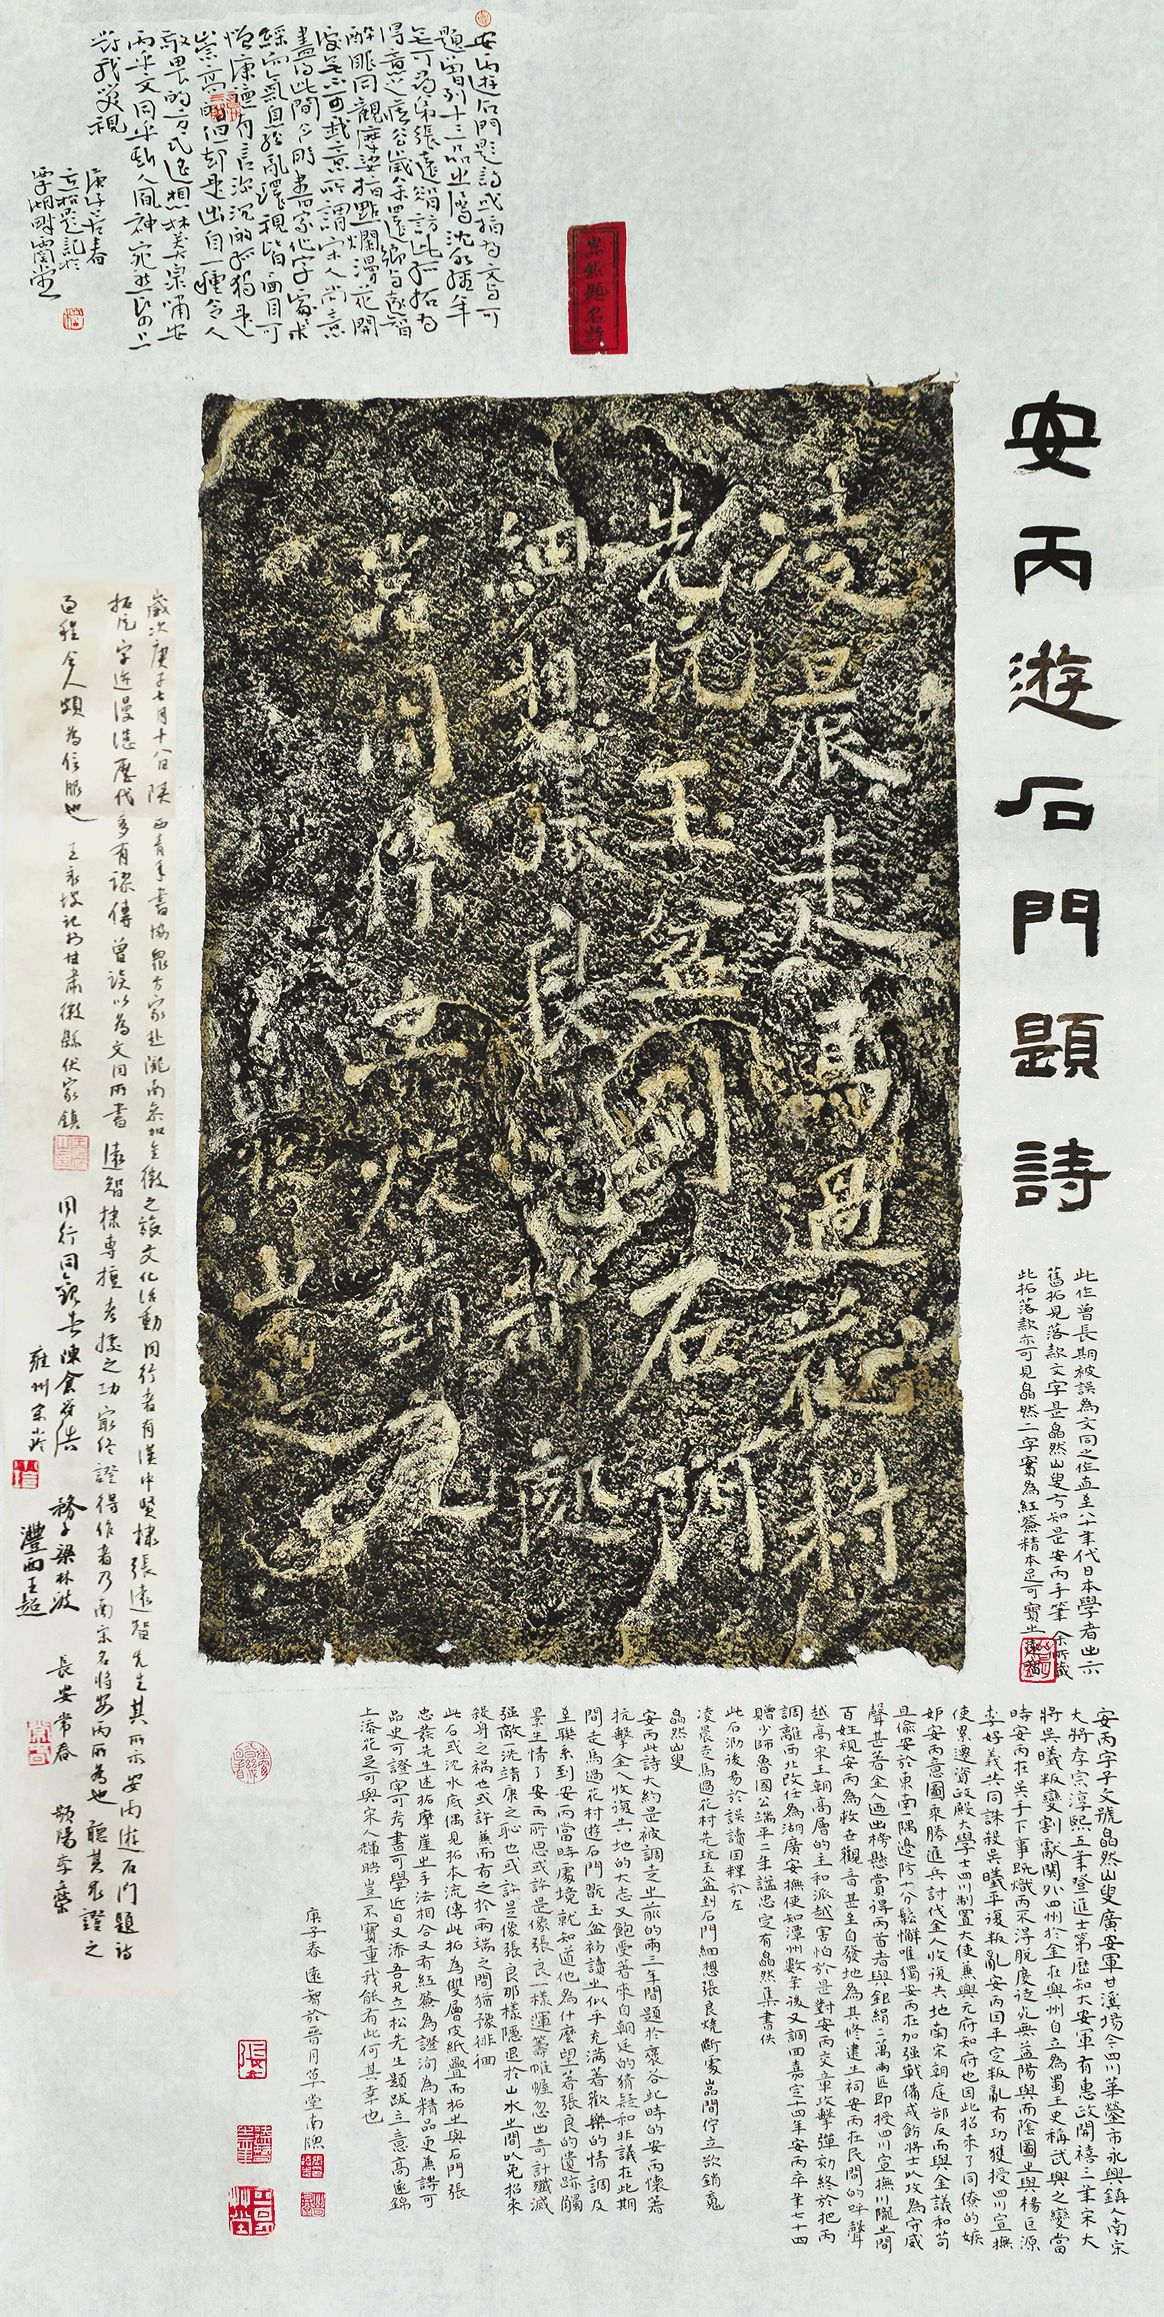 安丙遊石門題詩
此作曾長期被誤為文同之作直至八十年代日本學者出示
舊拓見落款文字是皛然山叟方知是安丙手筆 余所藏
此拓落款亦可見皛然二字實為紅簽精本足可寶之
皛然題名詩
凌晨走馬過花村
先玩玉盆到石門
細想張良燒斷處
岩間佇立欲銷魂
皛然山叟
安丙字子文號皛然山叟廣安軍甘溪場今四川華鎣市永興鎮人南宋
大將孝宗淳熙五年登進士第歷知大安軍有惠政開禧三年宋大
將吳曦叛變割獻關外四州於金在興州自立為蜀王史稱武興之變當
時安丙在吳手下事既熾丙不得脫度徒死無益陽與而陰圖之與楊巨源
李好義共同誅殺吳曦平復叛亂安丙因平定叛亂有功獲授四川宣撫
使累遷資政殿大學士四川制置大使兼興元府知府也因此招來了同僚的嫉
妒安丙意圖乘勝進兵討伐金人收復失地南宋朝庭卻反而與金議和苟
且偷安於東南一隅邊防十分鬆懈唯獨安丙在加強戰備戒飭將士以攻為守威
聲甚著金人迺出榜懸賞得丙首者與銀絹二萬兩匹即授四川宣撫川隴之間
百姓視安丙為救世觀音甚至自發地為其修建生祠安丙在民間的呼聲
越高宋王朝高層的主和派越害怕於是對安丙交章攻擊彈劾終於把丙
調離西北改任為湖廣安撫使知潭州數年後又調回嘉定十四年安丙卒年七十四
贈少師魯國公端平二年諡忠定有皛然集書佚
此石泐後易於誤讀因釋於左
凌晨走馬過花村先玩玉盆到石門細想張良燒斷處喦間佇立欲銷魂
皛然山叟
安丙此詩大約是被調走之前的兩三年間題於褒谷此時的安丙懷着
抗擊金人收復失地的大志又飽受著來自朝廷的猜疑和非議在此期
間走馬過花村遊石門翫玉盆初讀之似乎充滿着歡樂的情調及
至聯系到安丙當時處境就知道他為什麼望著張良的遺跡觸
景生情了安丙所思或許是像張良一樣運籌帷幄忽出奇計殲滅
強敵一洗靖康之恥也或許是像張良那樣隱退於山水之間以免招來
殺身之禍也或許兼而有之於兩端之間猶豫徘徊
此石或沈水底偶見拓本流傳此拓為雙層皮紙疊而拓之與石門張
忠發先生述拓摩崖之手法相合又有紅簽為證洵為精品更兼諤可
品史可證字可考書可學近日又添吾兄立松先生題跋三意高邈錦
上添花足可與宋人輝映豈不寶重我能有此何其幸也
庚子春遠智於晉月草堂南牕
安丙遊石門題詩或拓為文與可
題嘗列十三品之屬沈水經年
無可為弟張遠智訪此拓為
得意之 公歲余還鄉與遠智
酣眠同觀摩娑指點爛漫花開
處無不可哉意所謂宋人尚意
盡為此間今 書家作字富求
綵而氣息紛亂濁視皆面目可
憎康 有言淵沉 獨
崇高 但却是出自一種令人
敬畏的方式遥想林莫大宗嘯安
丙乎文同乎斯人風神宛然
對我笑視
庚子荅春
立松題記於
聽雲堂
歲次庚子七月十八日陝西青年書協眾方家赴隴南參加金徽之旅文化活動同行者有漢中賢棣張遠智先生其所示安丙遊石門題詩
拓片字跡漫漶歷代多有謬傳曾誤以為文同所書遠智棣專擅考據之功最終證得作者乃南宋名將安丙所為也聽其眾證之
百程令人頗為信服也 王永坡記於甘肅徽縣伏家鎮
同行同觀者陳倉 浩 務子梁林波 長安常春 頻陽李榮
雍州宋 灃西王超